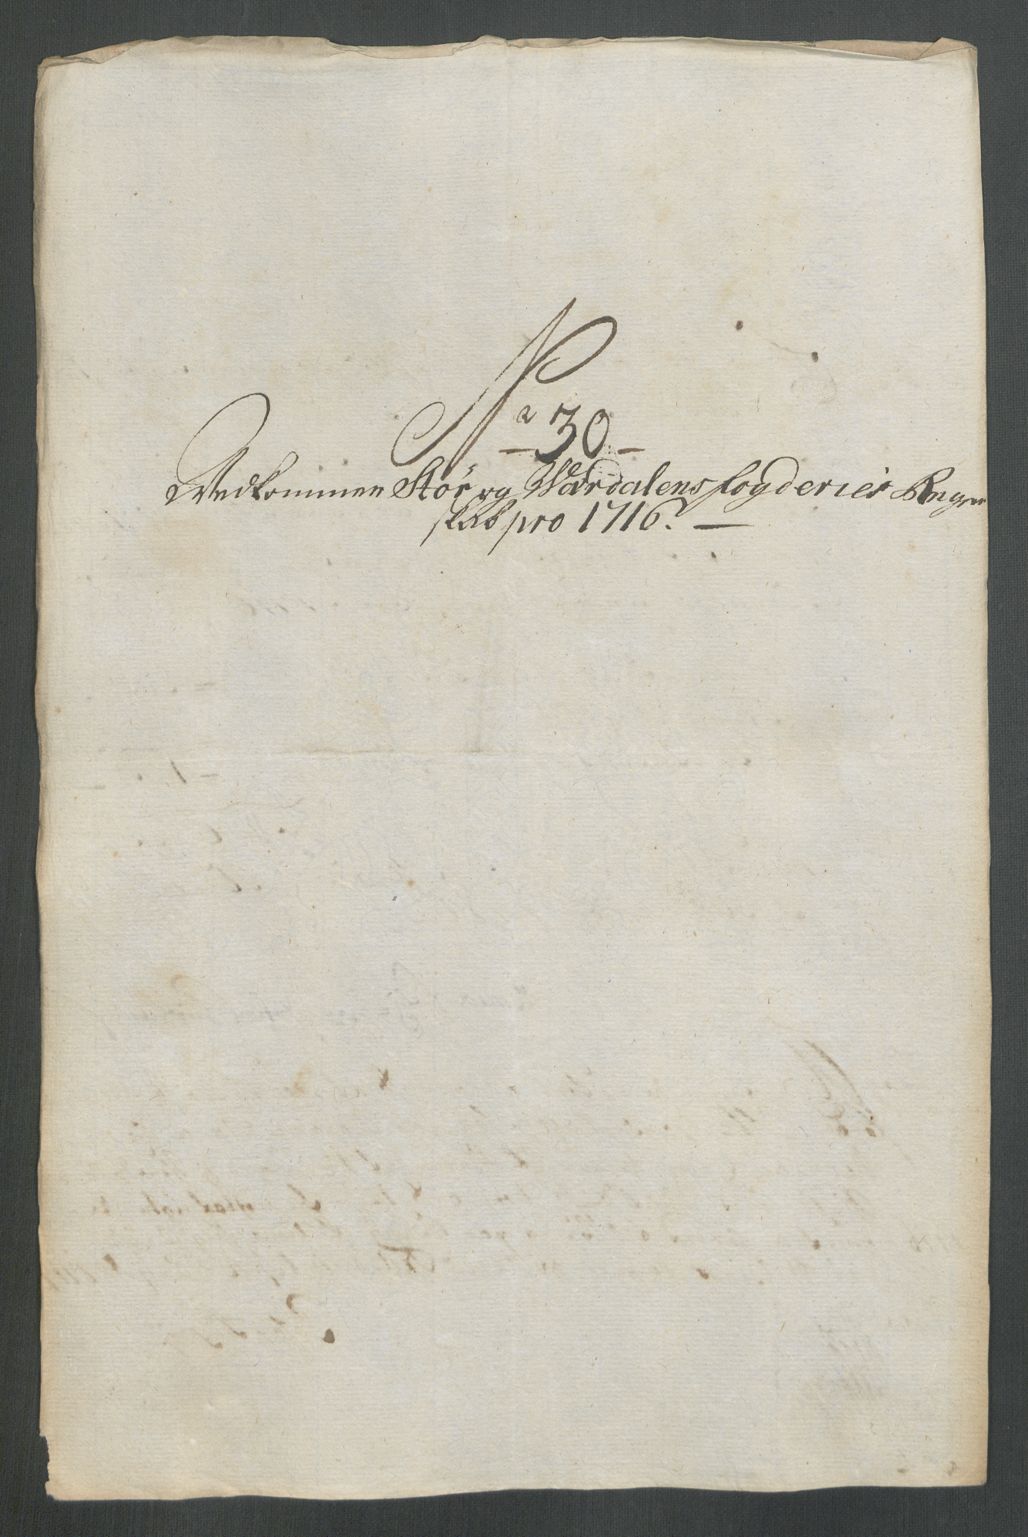 No 30
Vedkommen Stör og Værdalens fogderies Regen
skab pro 1716.